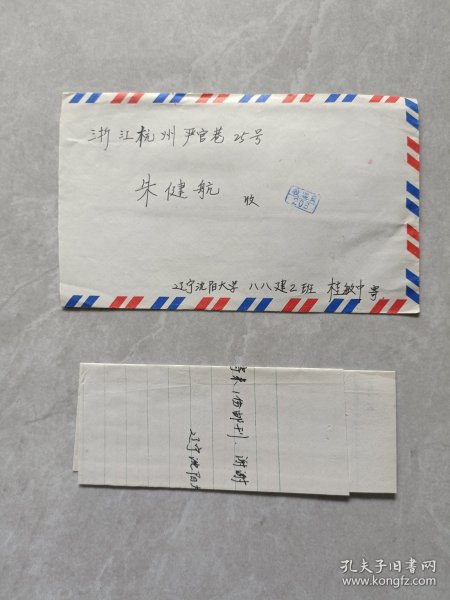 浙江杭州严官巷25号
朱健航 收
辽宁沈阳大学 八八建2班 桂敏中寄
寄来一份邮刊,谢谢
辽宁沈阳大
孔夫子旧书网
www.kongfz.com